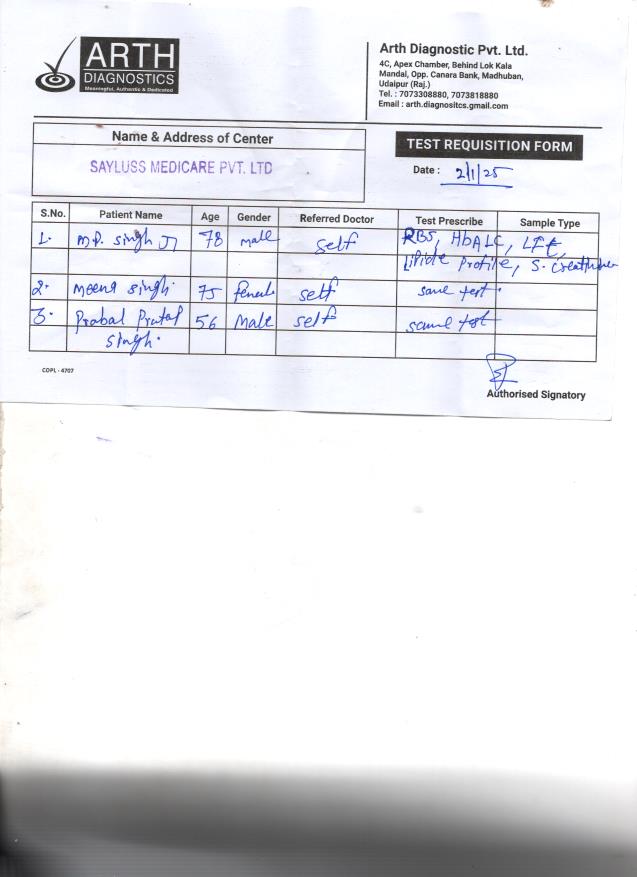 ARTH
DIAGNOSTICS
Meaningful, Authentic & Dedicated
Arth Diagnostic Pvt. Ltd.
4C, Apex Chamber, Behind Lok Kala
Mandal, Opp. Canara Bank, Madhuban,
Udaipur (Raj.)
Tel. : 7073308880, 7073818880
Email : arth.diagnositcs.gmail.com
Name & Address of Center
SAYLUSS MEDICARE PVT. LTD
TEST REQUISITION FORM
Date : 2/1/25
S.No. Patient Name Age Gender Referred Doctor Test Prescribe Sample Type
1. M.P. Singh Ji 78 male self RBS, HbALC, LFt,
Lipide Profile, S.
2. Meena Singh. 75 female self same test.
3. Prabal Pratap 56 Male self same test
Singh.
CDPL - 4707
Authorised Signatory